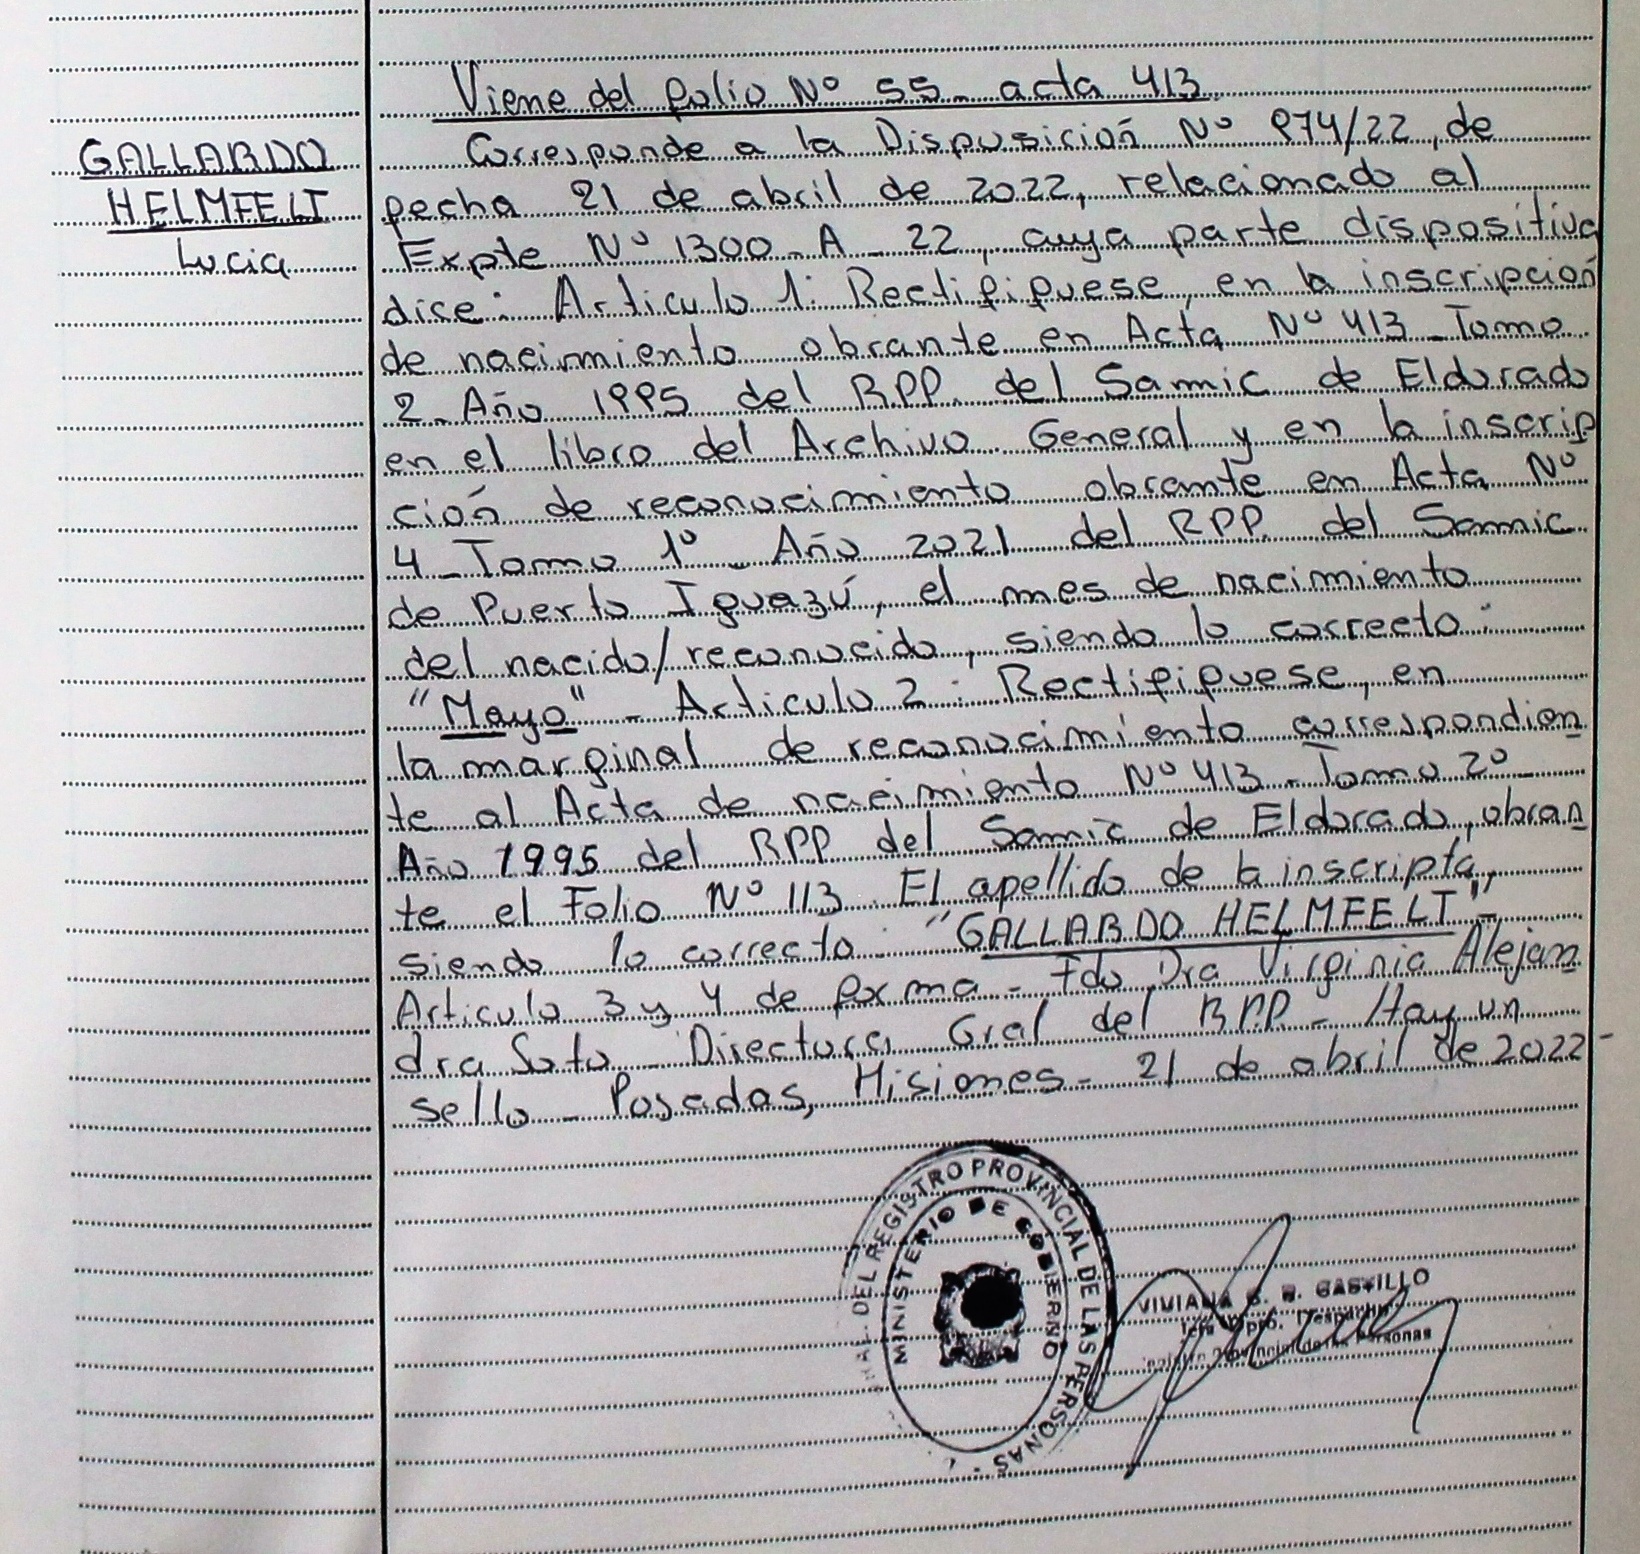 Viene del folio Nº 55 - acta 413
GALLARDO
HELMFELT
Lucia
Corresponde a la Disposición Nº 974/22, de
fecha 21 de abril de 2022, relacionado al
Expte Nº 1300 - A - 22, cuya parte dispositiva
dice: Articulo 1: Rectifiquese, en la inscripción
de nacimiento obrante en Acta Nº 413 - Tomo
2 - Año 1995 del RPP. del Samic de Eldorado
en el libro del Archivo General y en la inscrip
ción de reconocimiento obrante en Acta Nº
4 - Tomo 1º - Año 2021 del RPP. del Samic
de Puerto Iguazú, el mes de nacimiento
del nacido/reconocido, siendo lo correcto:
"Mayo" - Articulo 2: Rectifiquese, en
la marginal de reconocimiento correspondien
te al Acta de nacimiento Nº 413 - Tomo 2º -
Año 1995 del RPP del Samic de Eldorado, obran
te el Folio Nº 113. El apellido de la inscripta,
siendo lo correcto: "GALLARDO HELMFELT" -
Articulo 3 y 4 de forma - Fdo Dra Virginia Alejan
dra Soto - Directora Gral del RPP. - Hay un
sello - Posadas, Misiones - 21 de abril de 2022 -
DEL REGISTRO PROVINCIAL DE LAS PERSONAS
MINISTERIO DE GOBIERNO
VIVIANA CASTILLO
Provincial de las Personas